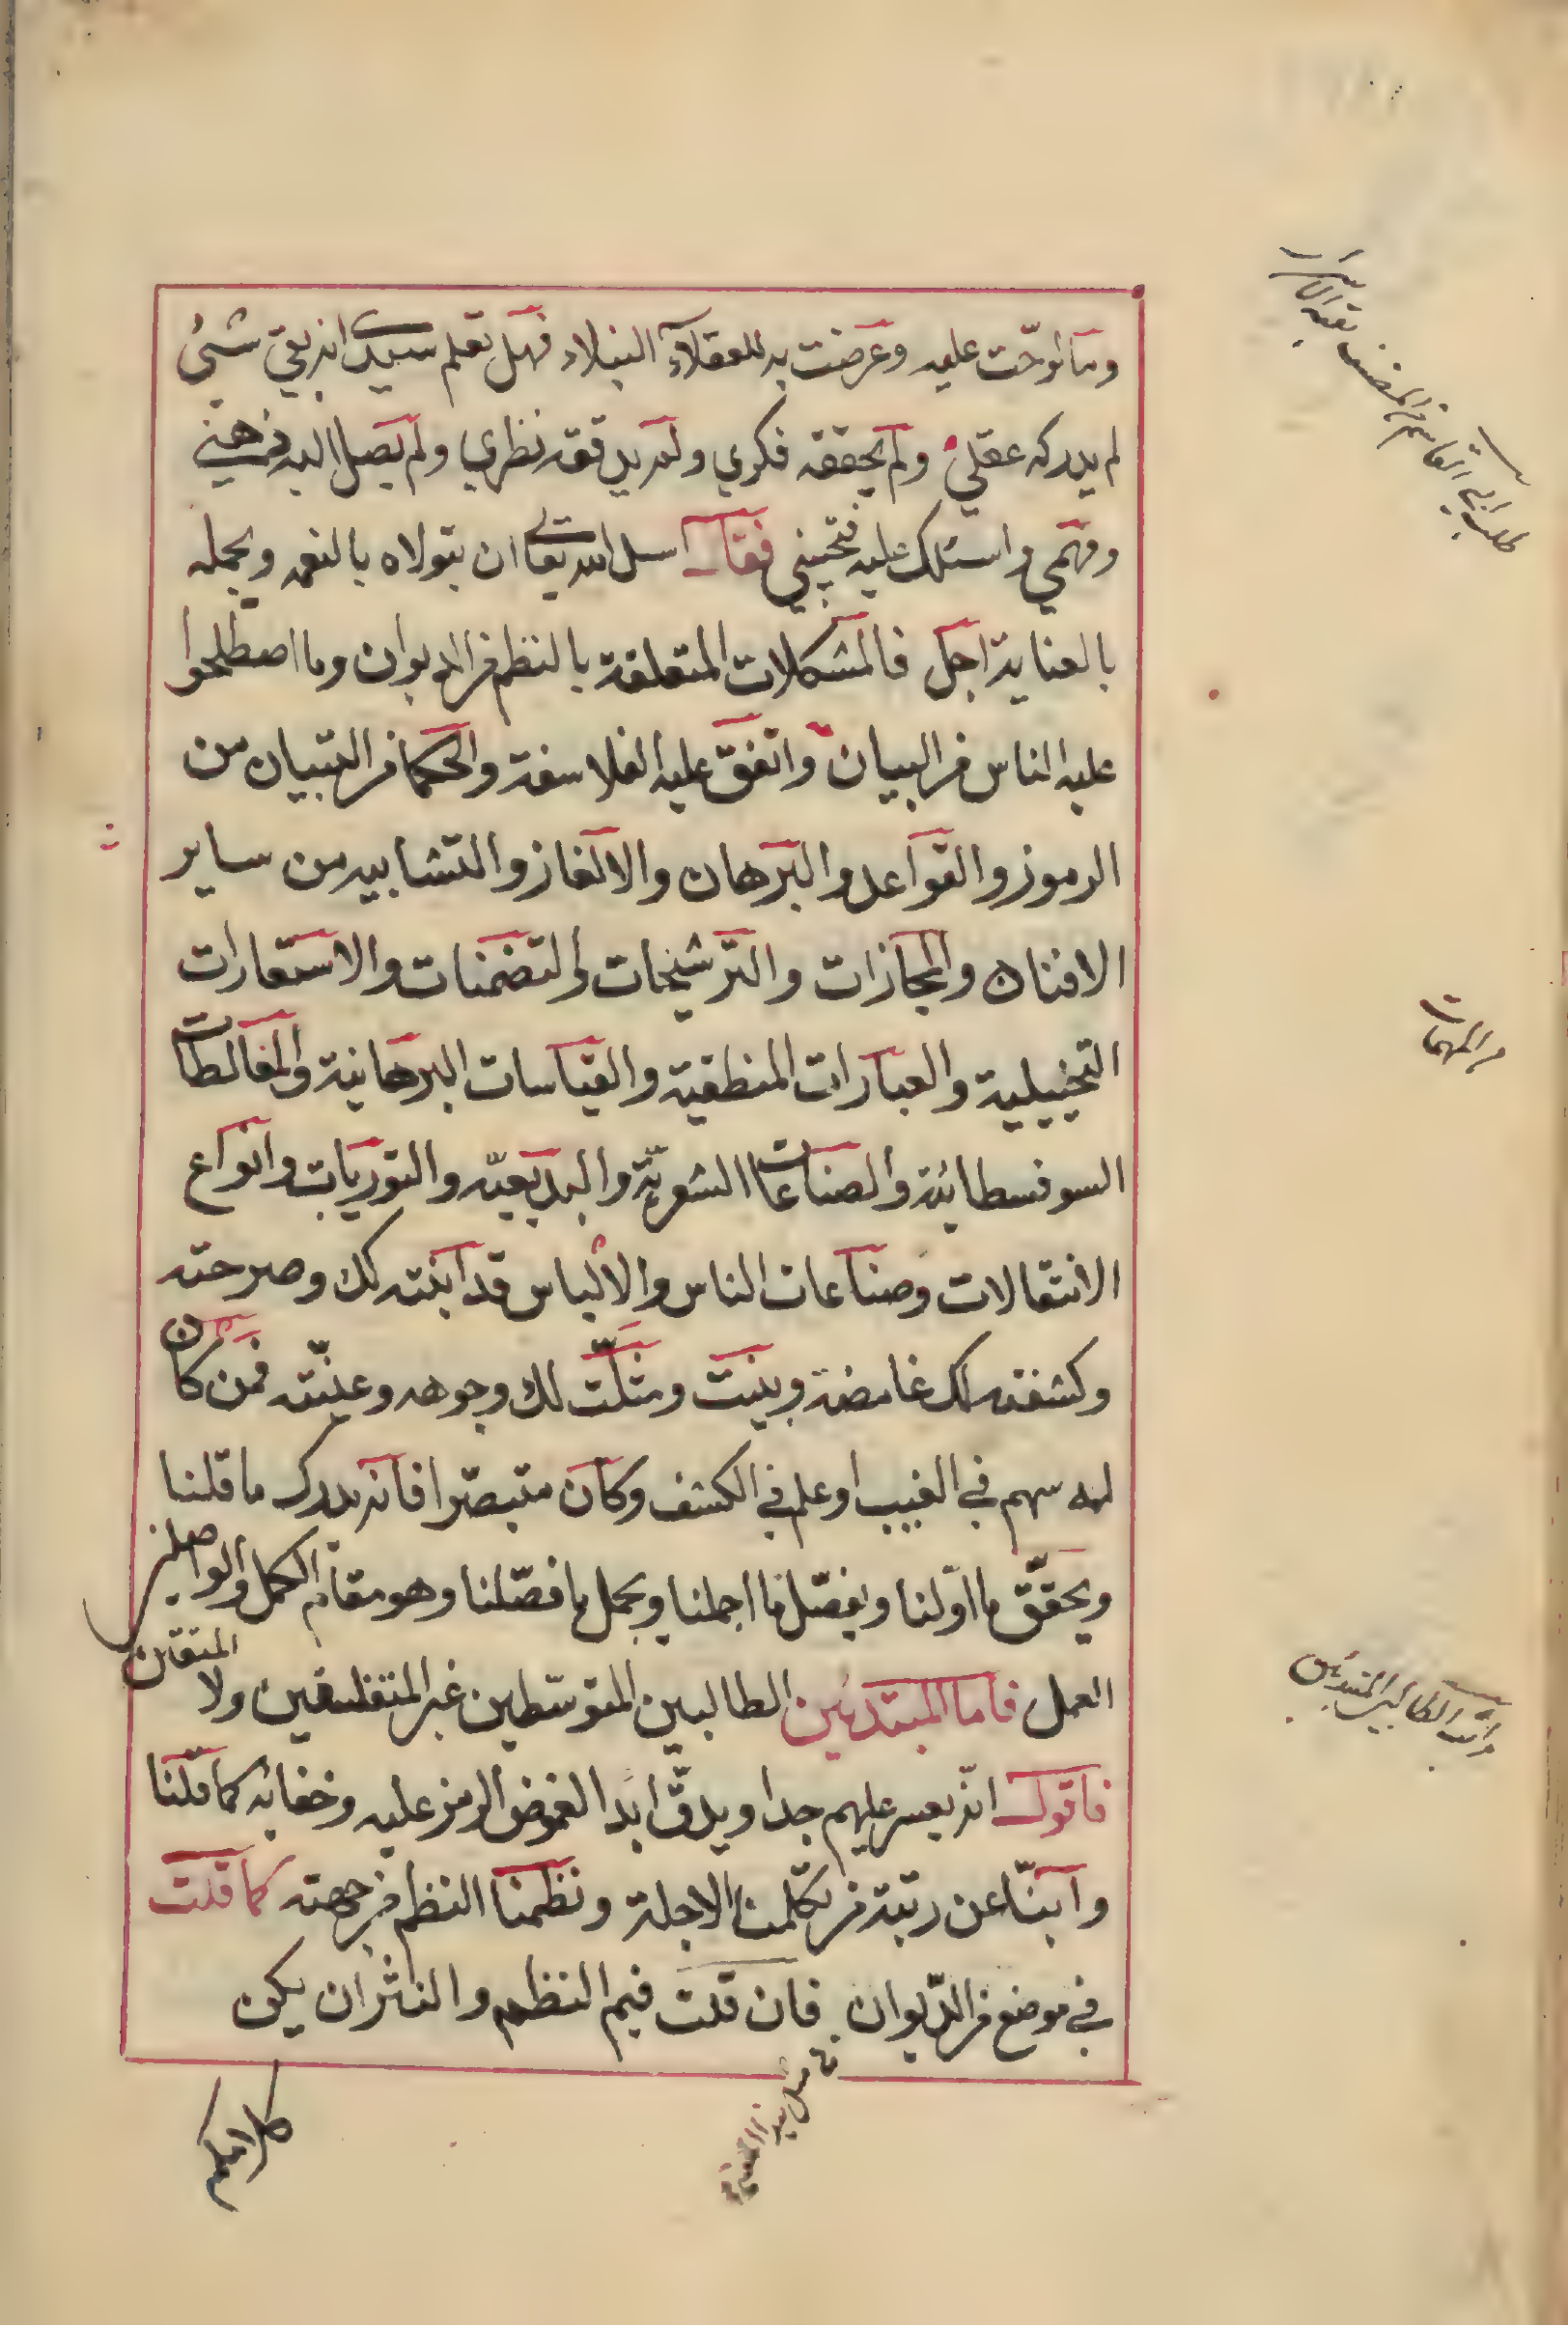 وما لوحت عليه وعرضت به للعقلاء النبلاء فهل تعلم سيدي انه بقي شيئ
لم يدركه عقلي ولم يحققه فكري ولم يدققه نظري ولم يصل اليه ذهني
وفهمي واسئلك عليه فتجيبني فقال اسل الله تعالى ان يتولاه بالنعمه ويجمله
بالعناية اجل فالمشكلات المتعلقة بالنظم في الديوان وما اصطلحوا
عليه الناس في البيان واتفق عليه الفلاسفة والحكما في التبيان من
الرموز والقواعد والبرهان والالغاز والتشابيه من ساير
الافنان والمجازات والترشيحات والتضمنات والاستعارات
التخييلية والعبارات المنطقية والقياسات البرهانية والمغالطات
السوفسطائية والصناعات الشعرية والبديعيه والتوريات وانواع
الانتقالات وصناعات الناس والالباس قد ابنته لك وصرحته
وكشفته لك غامضة وبينت ومثلت لك وجوهه وعينته فمن كان
له سهم في الغيب او علم في الكشف وكان متبصرا فانه يدرك ما قلنا
ويحقق ما اولنا ويفصل ما اجملنا ويجمل ما فصلنا وهو مقام الكمل والواصلين
العمل فاما المبتدئين الطالبين المتوسطين غير المتفلسفين ولا المتقنين
فاقول انه يعسر عليهم جدا ويدق ابدا لغموض الرمز عليه وخفائه كما قلنا
وابنا عن رتبة من تكلمنا لاجله ونظمنا النظم من جهته كما قلت
في موضع من الديوان فان قلت فيم النظم والنثر ان يكن
كلامكم
من المهمات
مراتب الطالبين المبتدئين